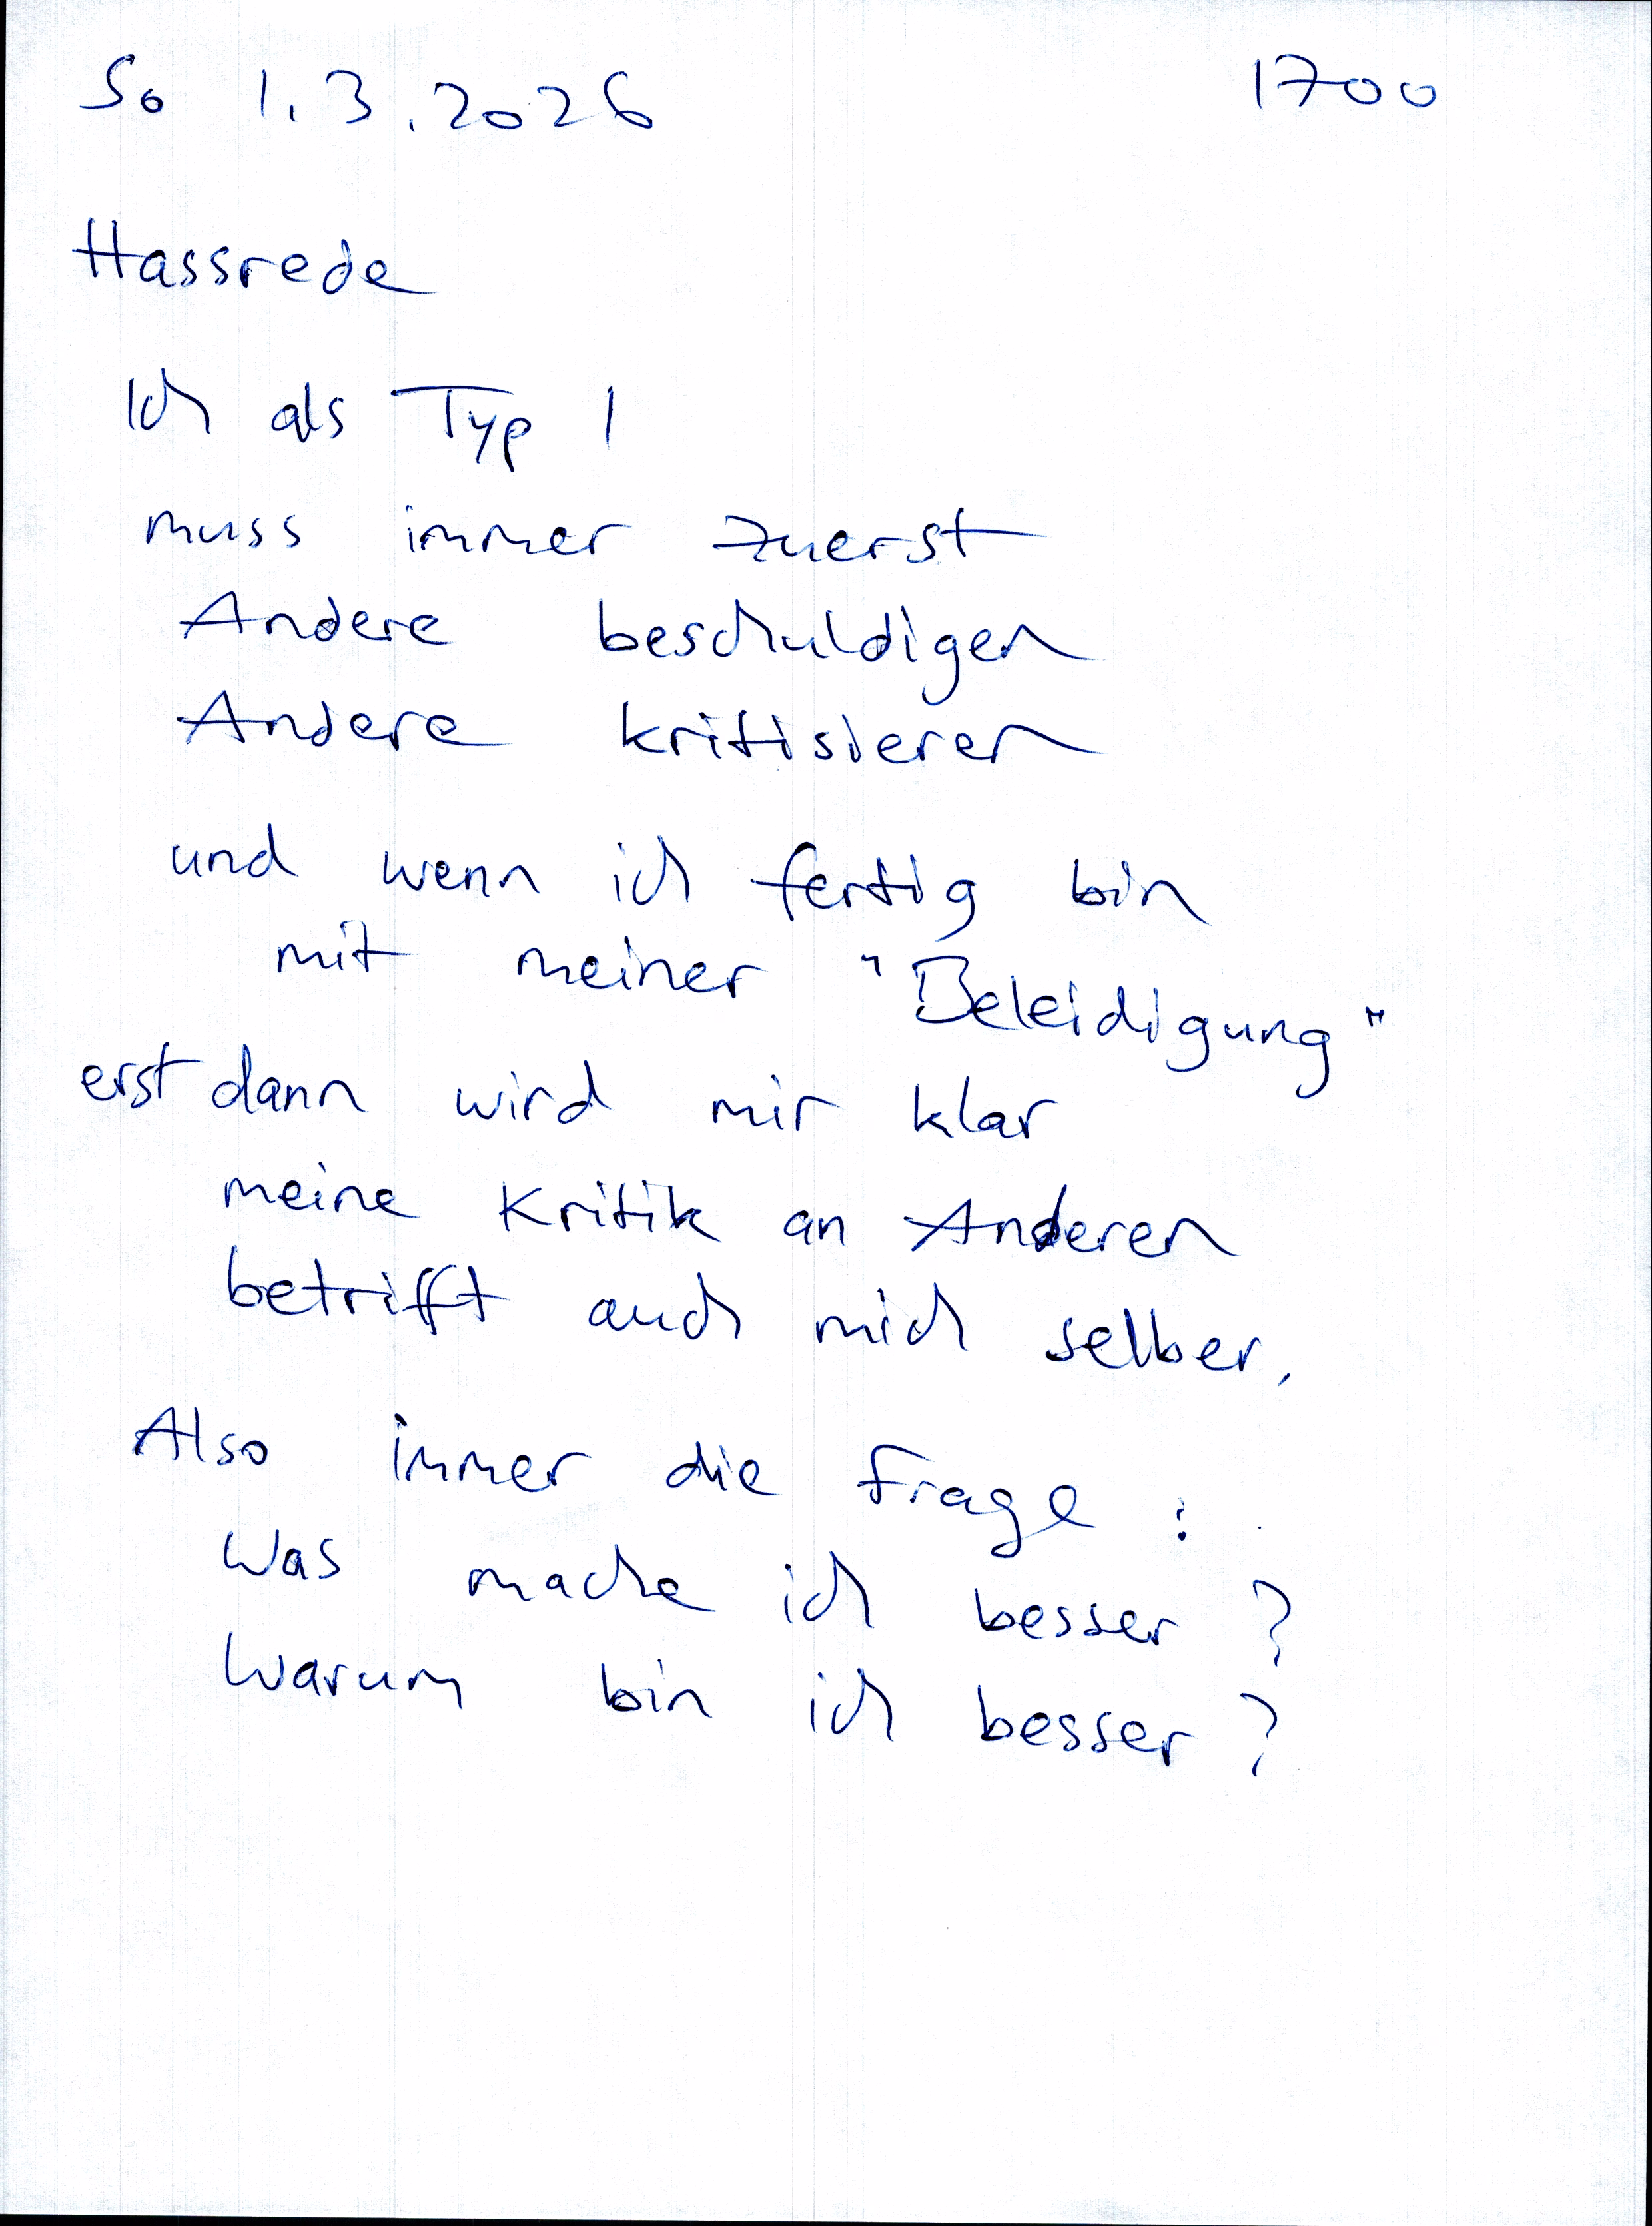 So 1.3.2026 1700
Hassrede
Ich als Typ 1
muss immer zuerst
Andere beschuldigen
Andere kritisieren
und wenn ich fertig bin
mit meiner "Beleidigung"
erst dann wird mir klar
meine Kritik an Anderen
betrifft auch mich selber.
Also immer die Frage :
Was mache ich besser ?
Warum bin ich besser ?